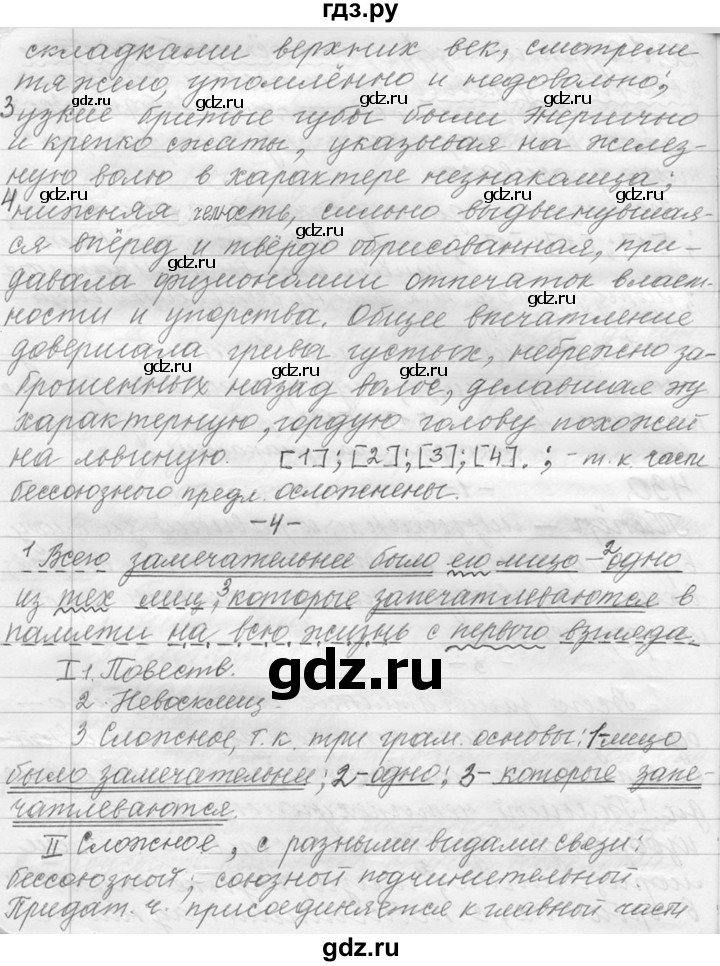 гдз.ру
складками верхних век, смотрели
тяжело, утомлённо и недовольно;
3 узкие бритые губы были энергично
и крепко сжаты, указывая на желез-
ную волю в характере незнакомца;
4 нижняя челюсть, сильно выдвинувшая-
ся вперёд и твёрдо обрисованная, при-
давала физиономии отпечаток власт-
ности и упорства. Общее впечатление
довершала грива густых, небрежно за-
брошенных назад волос, делавшая эту
характерную, гордую голову похожей
на львиную. [1]; [2]; [3]; [4]. ; - т.к. части
бессоюзного предл. осложнены.
-4-
1 Всего замечательнее было его лицо - 2 одно
из тех лиц, 3 которые запечатлеваются в
памяти на всю жизнь с первого взгляда.
I 1. Повеств.
2. Невосклиц.
3. Сложное, т.к. три грам. основы: 1-лицо
было замечательнее; 2-одно; 3-которые запе-
чатлеваются.
II Сложное, с разными видами связи:
бессоюзной; союзной подчинительной.
Придат. ч. присоединяется к главной части
gdz.ru
gdz.ru
gdz.ru
gdz.ru
gdz.ru
gdz.ru
gdz.ru
gdz.ru
gdz.ru
gdz.ru
gdz.ru
gdz.ru
gdz.ru